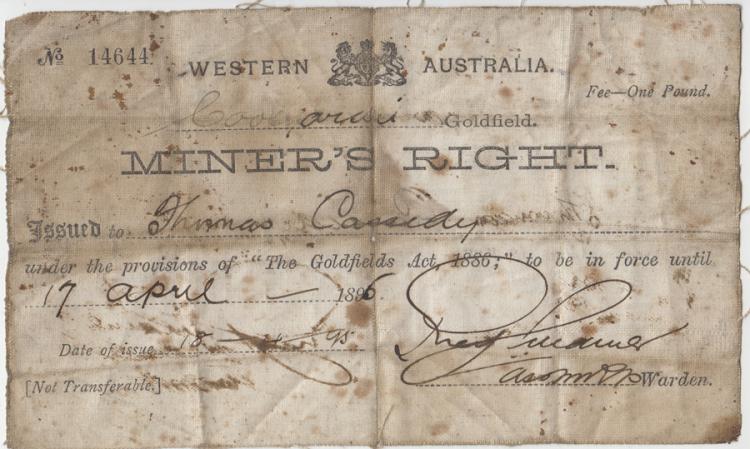 No 14644
WESTERN AUSTRALIA.
Fee—One Pound.
Coolgardie Goldfield.
MINER'S RIGHT.
Issued to Thomas Cassidy
under the provisions of "The Goldfields Act, 1886," to be in force until
17 April — 1896.
Date of issue 18 – 4 – 95
[Not Transferable.] Warden.